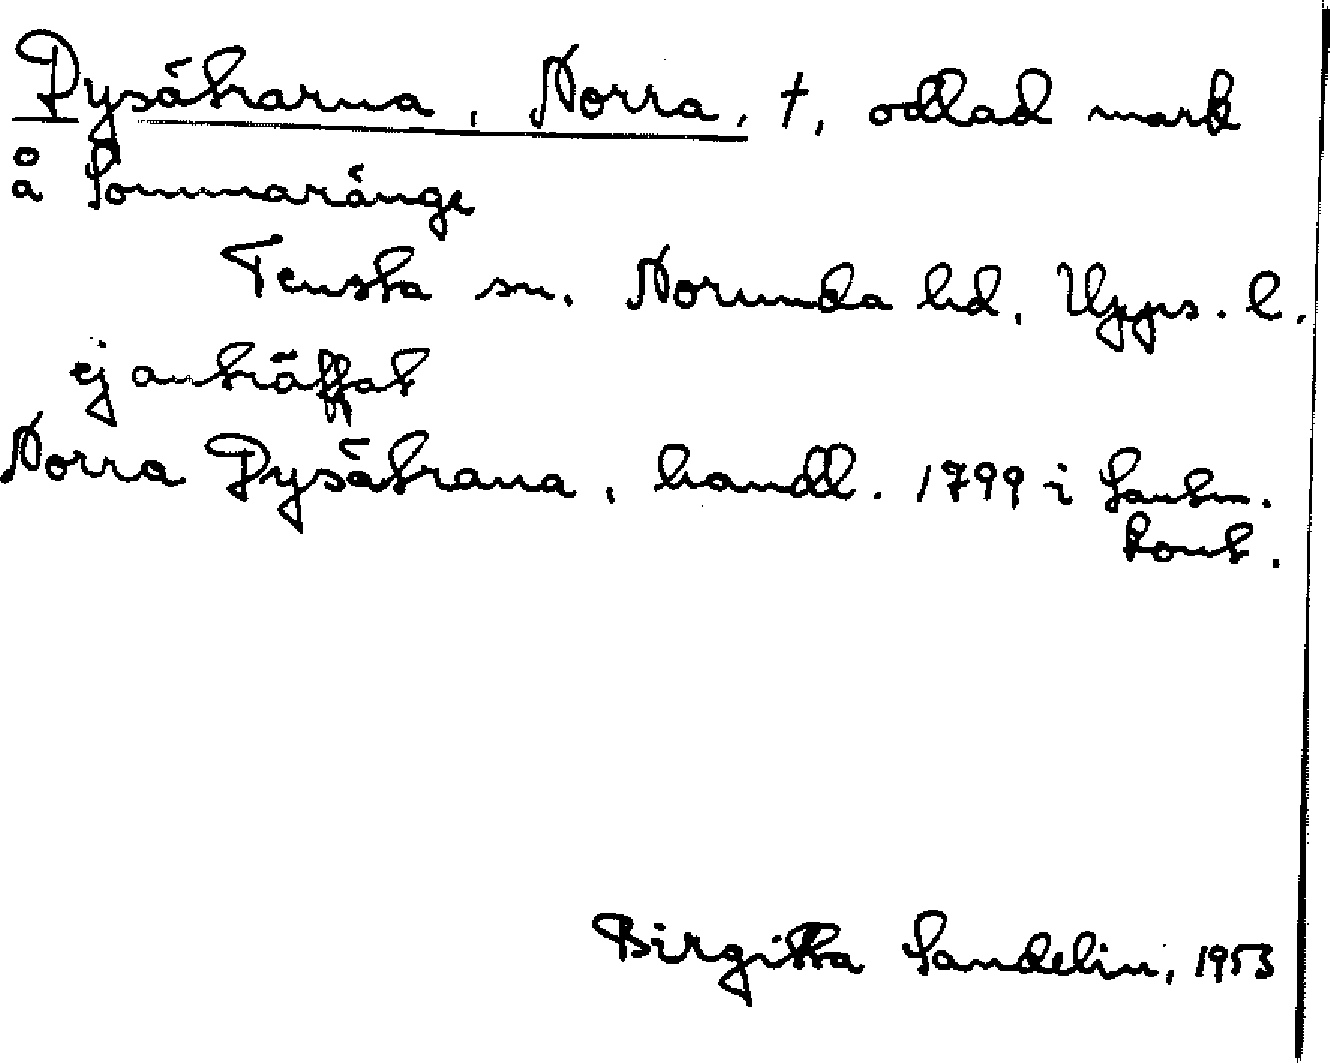 Dysåkrarna, Norra, †, odlad mark
å Sommaränge
Tensta sn. Norunda hd. Upps. l.
ej anträffat
Norra Dysåkrana, handl. 1799 i Lantm.
kont.
Birgitta Sandelin, 1953